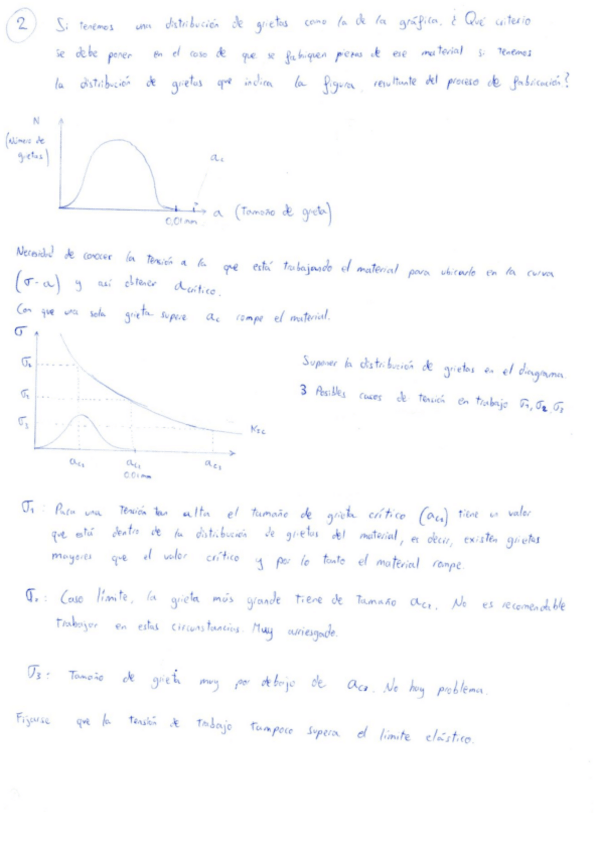 2 Si tenemos una distribución de grietas como la de la gráfica. ¿Qué criterio
se debe poner en el caso de que se fabriquen piezas de ese material si tenemos
la distribución de grietas que indica la figura, resultante del proceso de fabricación?
N
(Número de
grietas)
ac
0,01mm
a (Tamaño de grieta)
Necesidad de conocer la tensión a la que está trabajando el material para ubicarlo en la curva
(σ-a) y así obtener acrítico.
Con que una sola grieta supere ac rompe el material.
σ
σ1
σ2
σ3
KIC
ac1
ac2
ac3
0,01mm
Suponer la distribución de grietas en el diagrama
3 Posibles casos de tensión en trabajo σ1, σ2, σ3
σ1: Para una tensión tan alta el tamaño de grieta crítico (ac1) tiene un valor
que está dentro de la distribución de grietas del material, es decir, existen grietas
mayores que el valor crítico y por lo tanto el material rompe.
σ2: Caso límite, la grieta más grande tiene de tamaño ac2. No es recomendable
trabajar en estas circunstancias. Muy arriesgado.
σ3: Tamaño de grieta muy por debajo de ac3. No hay problema.
Fijarse que la tensión de trabajo tampoco supera el límite elástico.